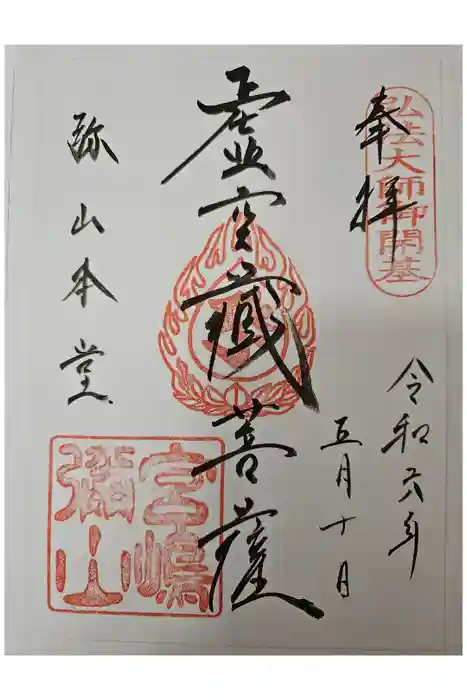 弘法大師御開基
奉拝
令和六年
五月十月
虚空蔵菩薩
弥山本堂
宮嶋
彌山